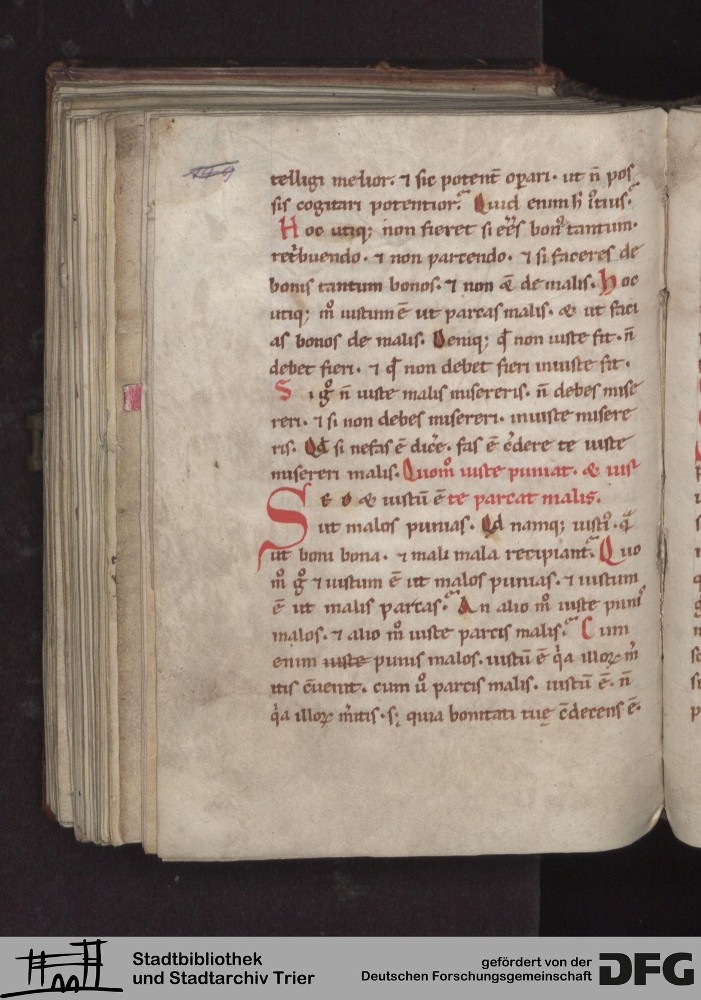 telligi melior. ⁊ sic potent̄ op̱ari. ut n̄ pos
sis cogitari potentior. Quid enim h̄ i̊tius.
Hoc utiq; non fieret si ee͛s bon᷒ tantum.
ret͛buendo. ⁊ non parcendo. ⁊ si faceres de
bonis tantum bonos. ⁊ non &̄ de malis. Hoc
utiq; m̊ iustum ē ut parcas malis. & ut faci
as bonos de malis. Deniq; qd̄ non iuste fit. n̄
debet fieri. ⁊ qd̄ non debet fieri iniuste fit.
Si g̊ n̄ iuste malis misereris. n̄ debes mise
reri. ⁊ si non debes misereri. iniuste misere
ris. Qd̄ si nefas ē dic͛e. fas ē c͛dere te iuste
misereri malis. Quom̊ iuste puniat. & ius
Sed & iustū ē te parcat malis.
ut malos punias. Qd̄ namq; iusti᷒. qͣ
ut boni bona. ⁊ mali mala recipiant. Quo
m̊ g̊ ⁊ iustum ē ut malos punias. ⁊ iustum
ē ut malis parcas. An alio m̊ iuste punis
malos. ⁊ alio m̊ iuste parcis malis. Cum
enim iuste punis malos. iustū ē qͥa illoꝝ m͛
itis c̄uenit. cum ů parcis malis. iustū ē. n̄
qͥa illoꝝ m͛itis. sꝫ quia bonitati tuę c̄decens ē.
Stadtbibliothek
und Stadtarchiv Trier
gefördert von der
Deutschen Forschungsgemeinschaft
DFG